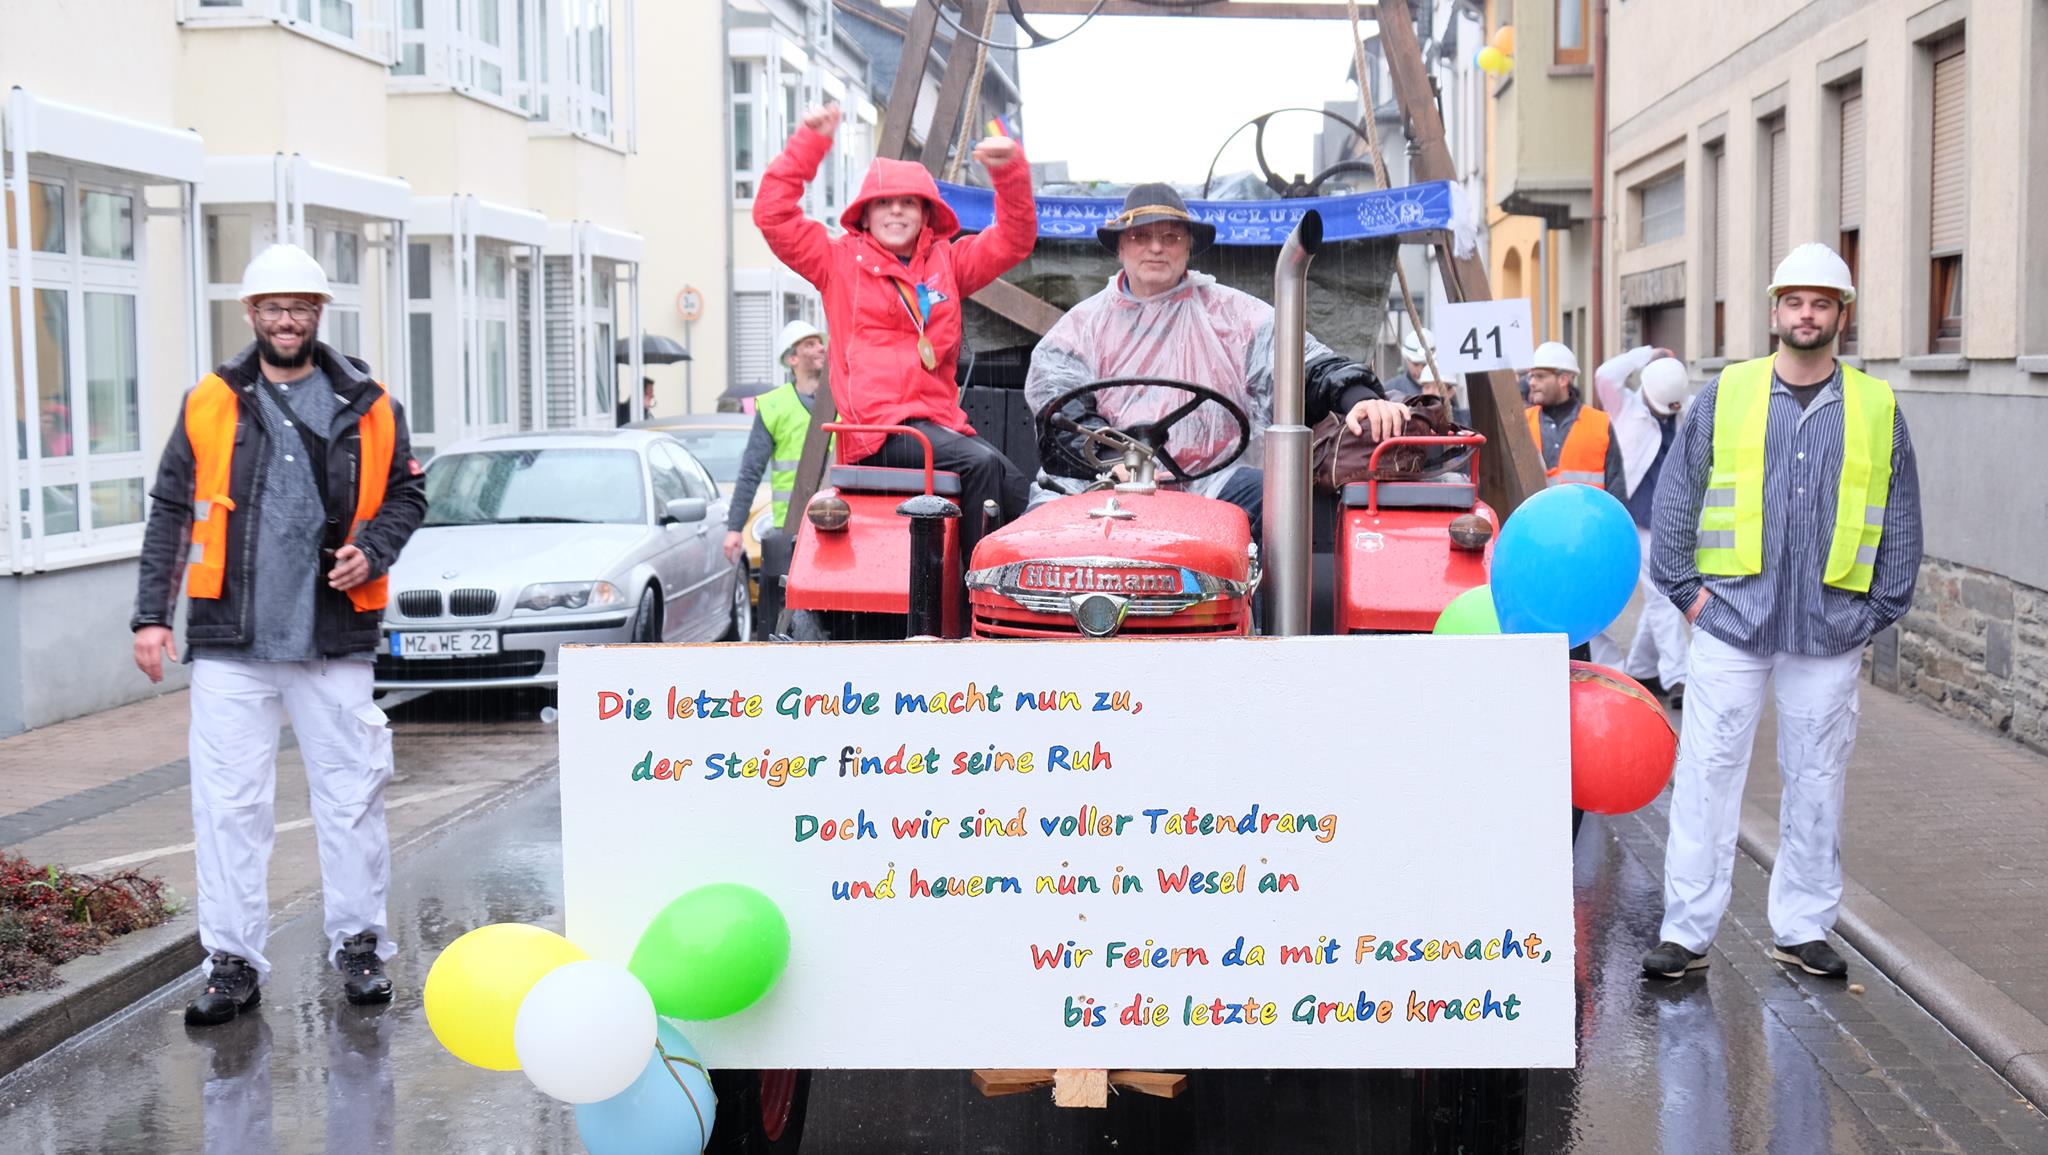 SCHALKE FANCLUB
41
Hürlimann
MZ WE 22
Die letzte Grube macht nun zu,
der Steiger findet seine Ruh
Doch wir sind voller Tatendrang
und heuern nun in Wesel an
Wir Feiern da mit Fassenacht,
bis die letzte Grube kracht